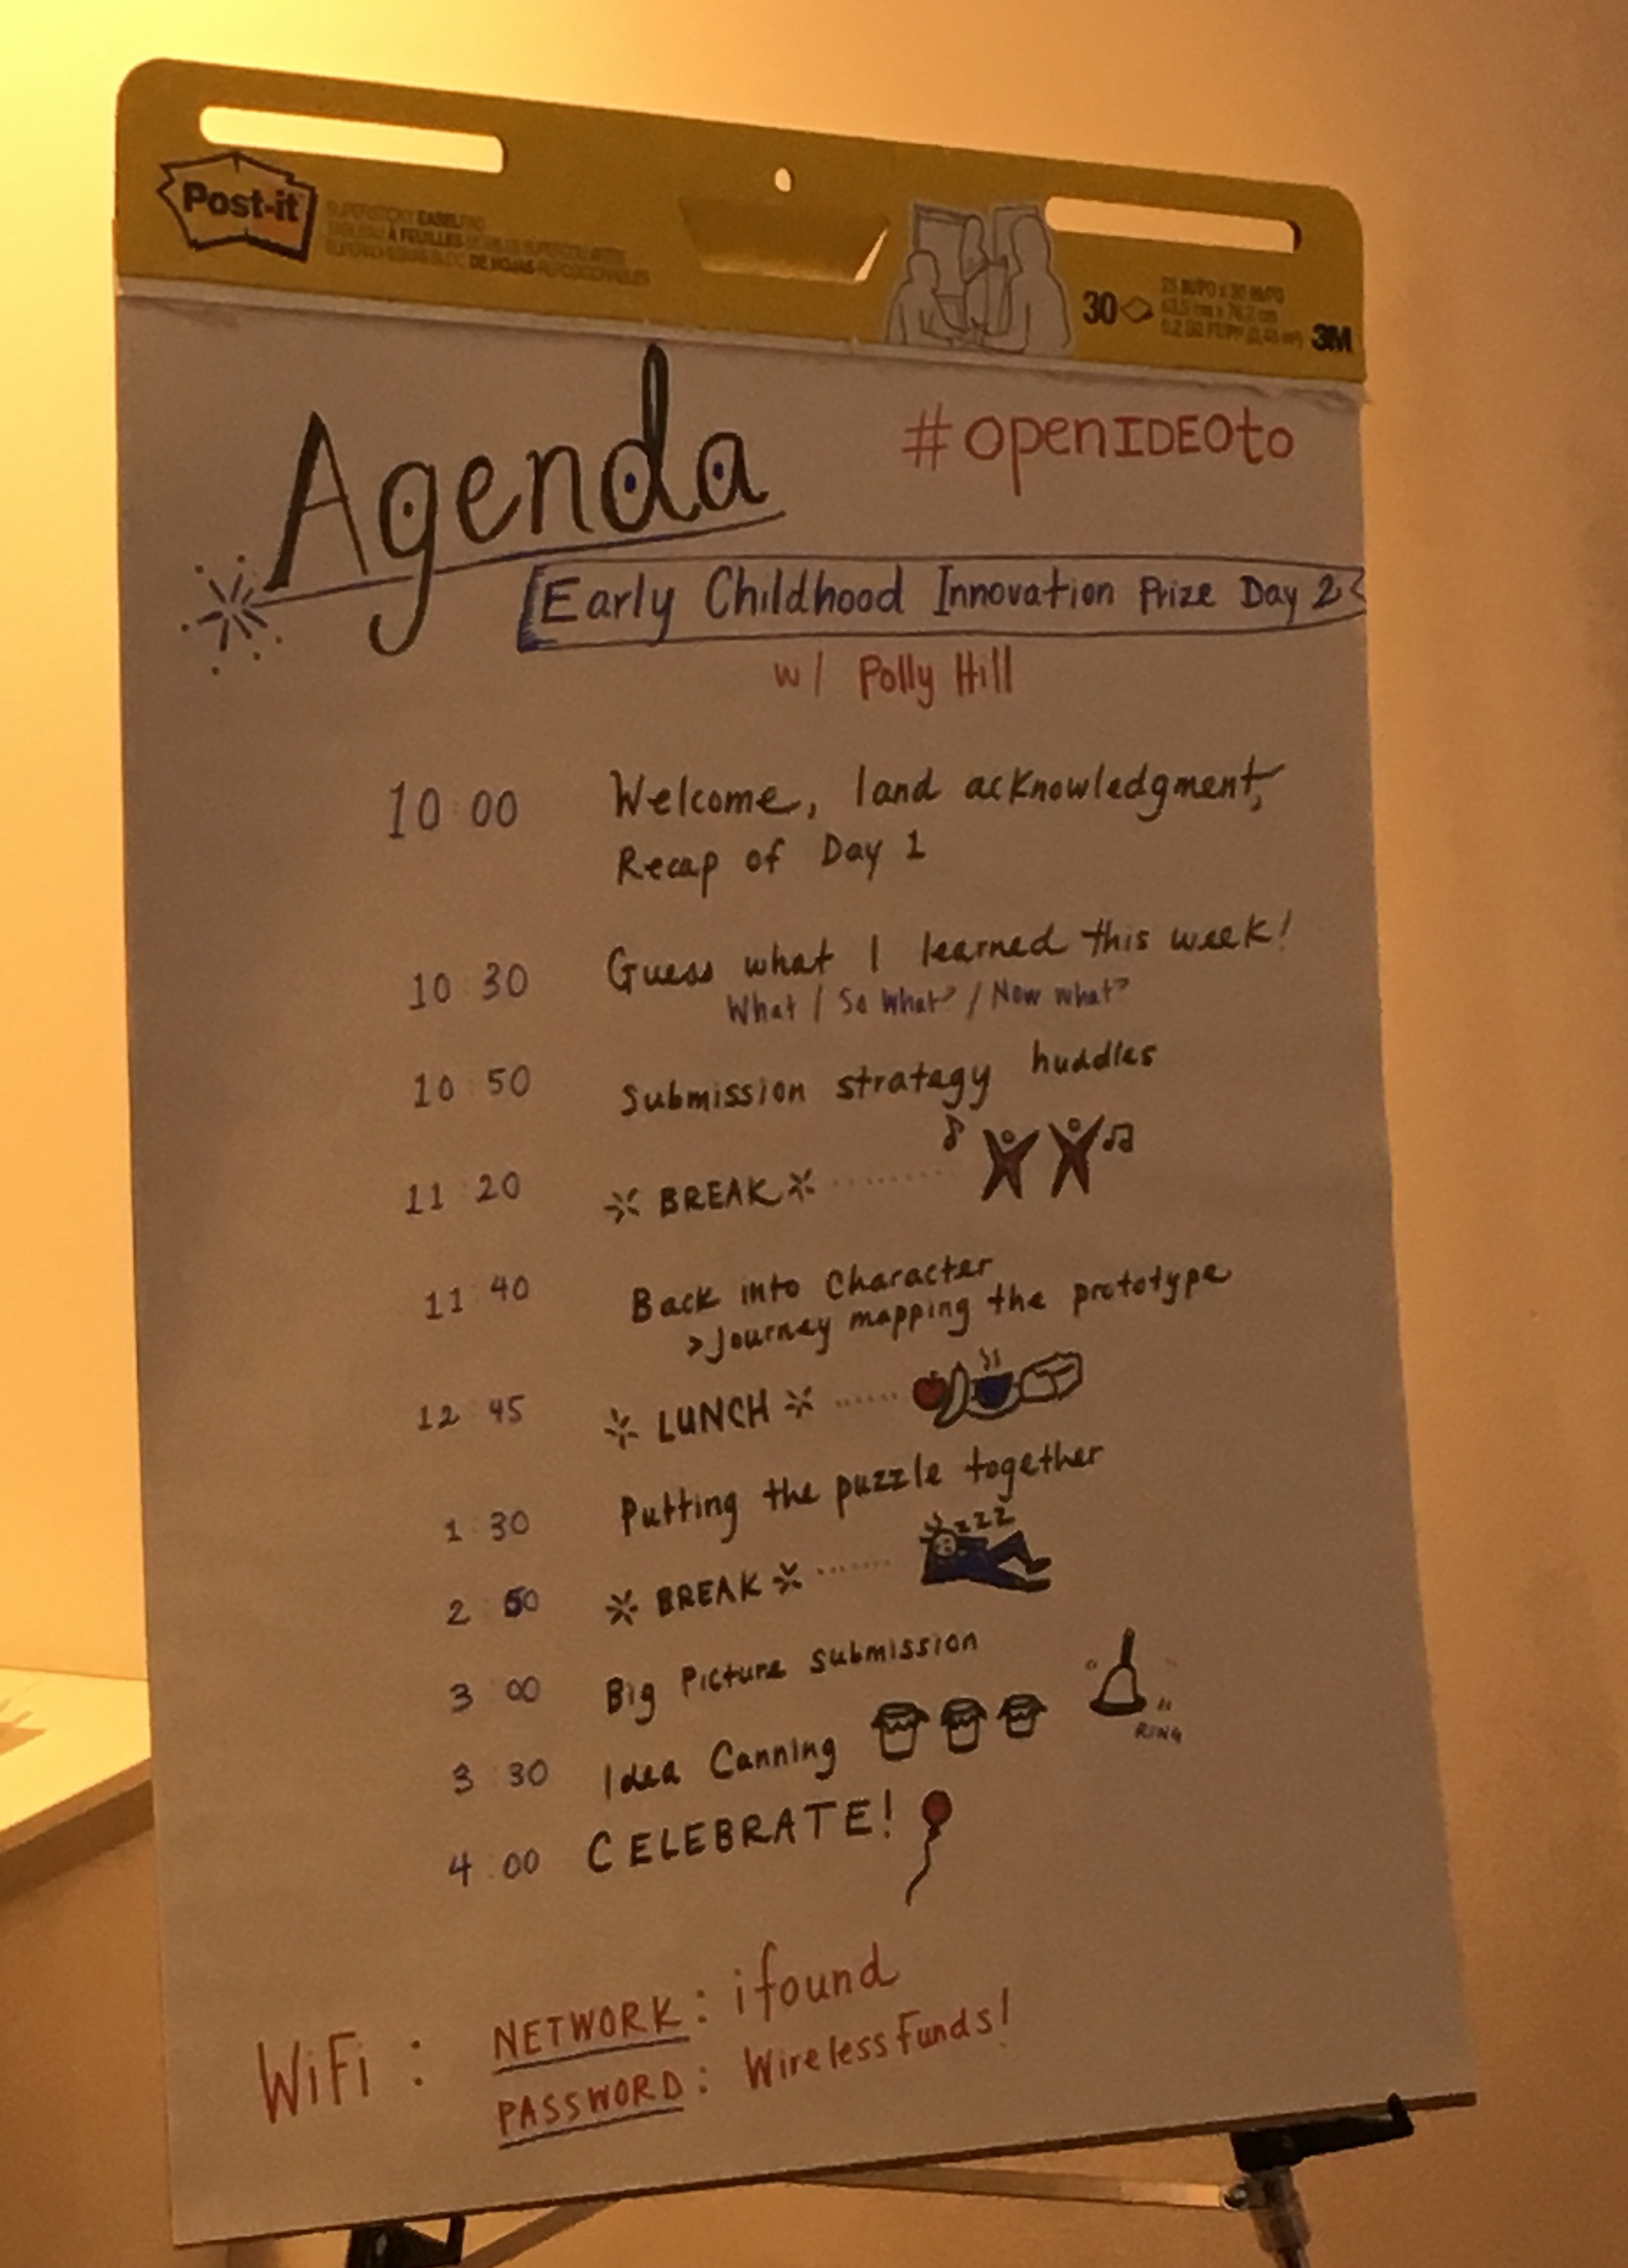 Post-it
SUPERSTICKY EASEL PAD
TABLEAU À FEUILLES MOBILES SUPERCOLLANTES
DE HOJAS
30
25 IN/PO x 30 IN/PO
63,5 cm x 76,2 cm
3M
Agenda
#openIDEOto
Early Childhood Innovation Prize Day 2
w/ Polly Hill
10:00 Welcome, land acknowledgment,
Recap of Day 1
10:30 Guess what I learned this week!
What / So what? / Now what?
10:50 Submission strategy huddles
11:20 BREAK
11:40 Back into Character
> Journey mapping the prototype
12:45 LUNCH
1:30 Putting the puzzle together
zzz
2:50 BREAK
3:00 Big Picture Submission
RING
3:30 Idea Canning
4:00 CELEBRATE!
WiFi: NETWORK: ifound
PASSWORD: WirelessFunds!